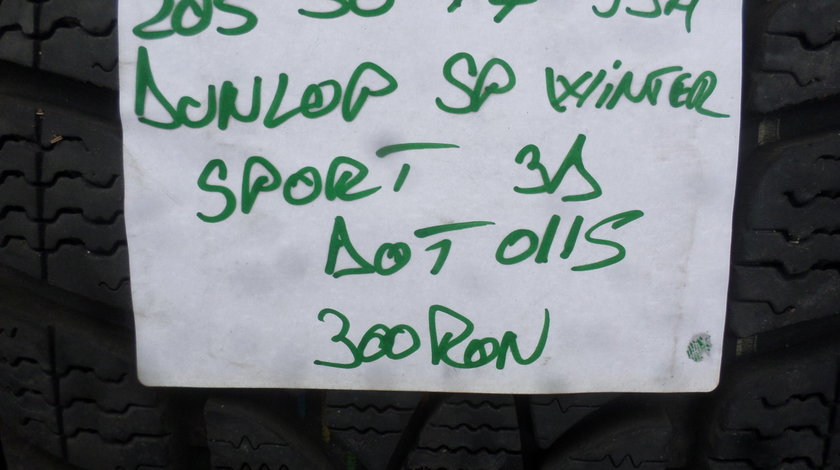 205 50 17 93H
DUNLOP SP WINTER
SPORT 3D
DOT 0115
300 RON